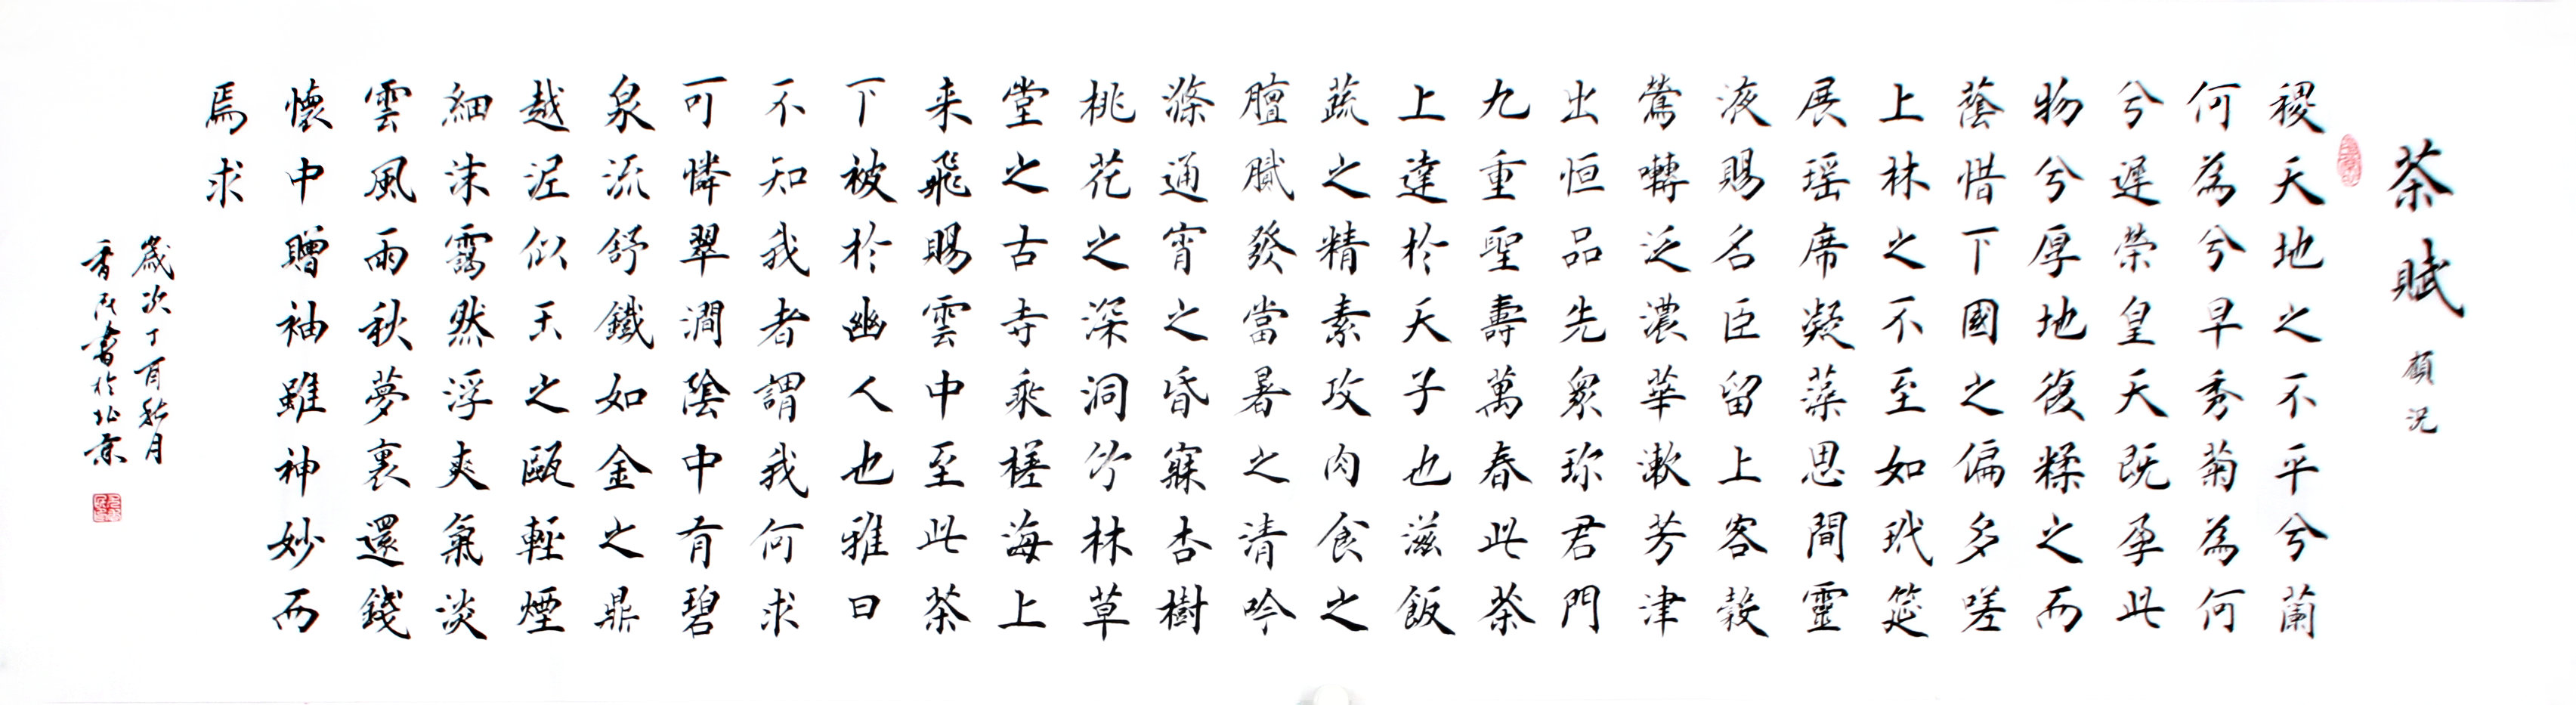 茶賦 顧況
稷天地之不平兮蘭
何為兮早秀菊為何
兮遲榮皇天既孕此
物兮厚地復糅之而
蔭惜下國之偏多嗟
上林之不至如玳筵
展瑶席凝藻思間靈
液賜名臣留上客穀
鶯囀泛濃華漱芳津
出恒品先衆珍君門
九重聖壽萬春此茶
上達於天子也滋飯
蔬之精素攻肉食之
膻膩發當暑之清吟
滌通宵之昏寐杏樹
桃花之深洞竹林草
堂之古寺乘槎海上
来飛賜雲中至此茶
下被於幽人也雅曰
不知我者謂我何求
可憐翠澗陰中有碧
泉流舒鐵如金之鼎
越泥似玉之甌輕煙
細沫靄然浮爽氣淡
雲風雨秋夢裏還錢
懷中贈袖雖神妙而
焉求
歲次丁酉秋月
香民書於北京